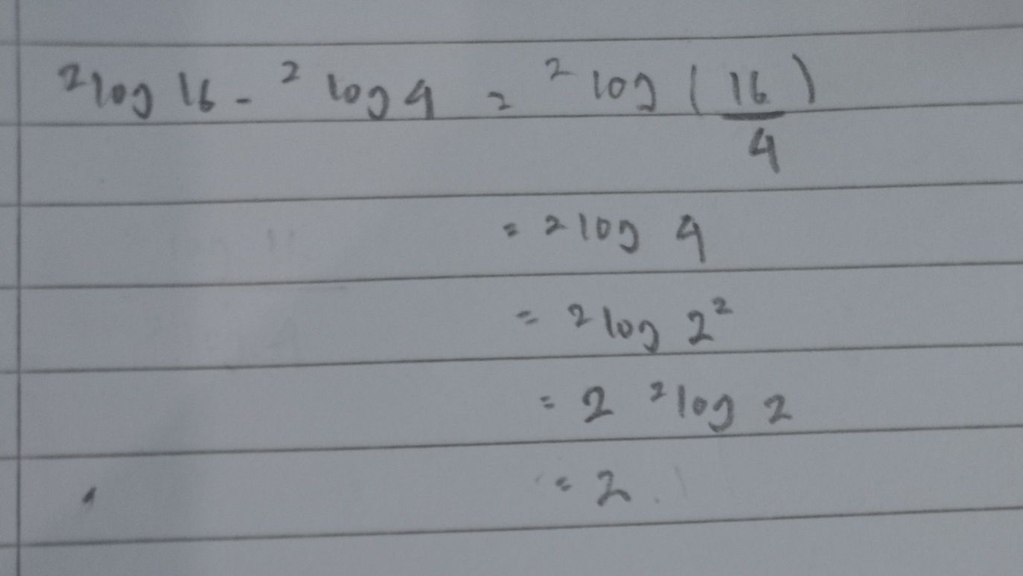 ²log 16 - ² log 4 = ² log ( 16/4 )
= ² log 4
= ² log 2²
= 2 ² log 2
= 2